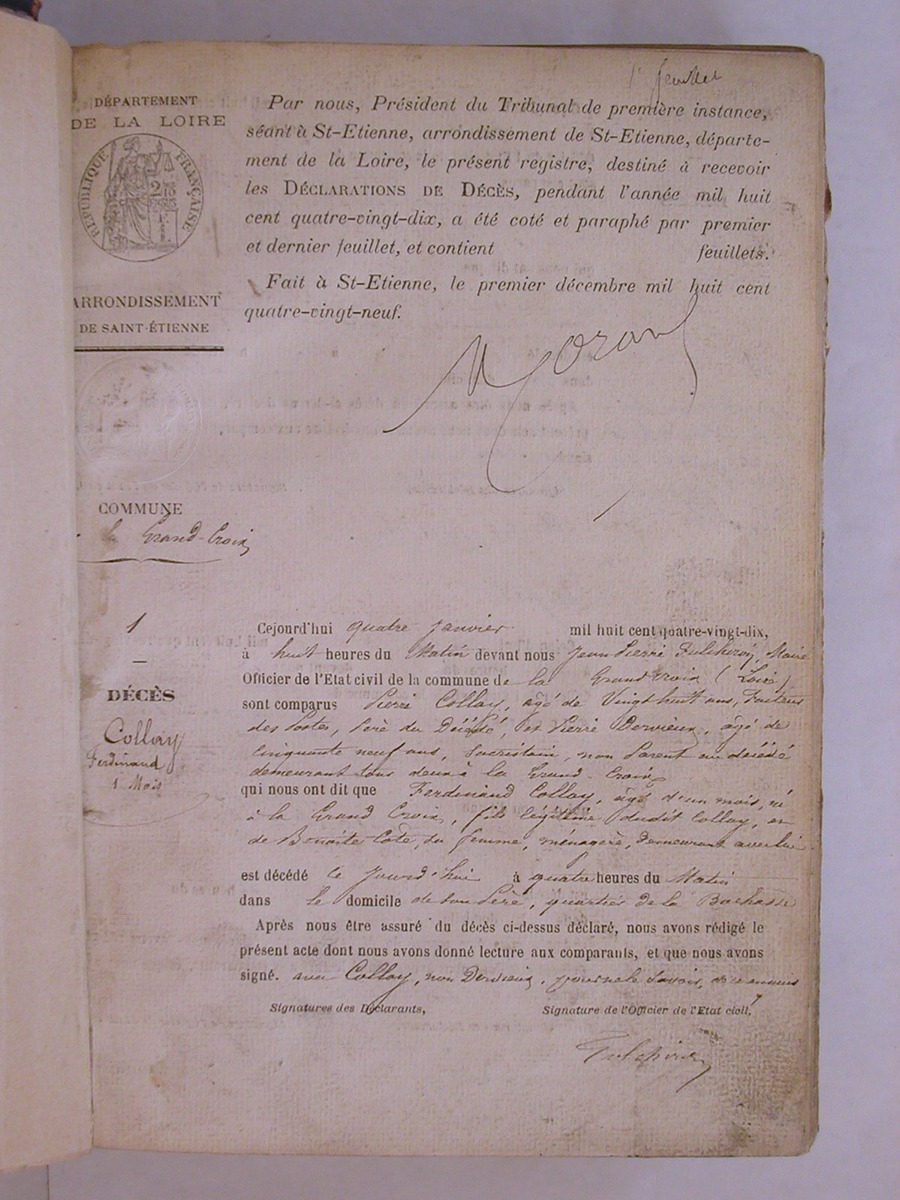 1er feuillet
DÉPARTEMENT
DE LA LOIRE
RÉPUBLIQUE FRANÇAISE
ARRONDISSEMENT
DE SAINT-ÉTIENNE
Par nous, Président du Tribunal de première instance,
séant à St-Etienne, arrondissement de St-Etienne, départe-
ment de la Loire, le présent registre, destiné à recevoir
les DÉCLARATIONS DE DÉCÈS, pendant l'année mil huit
cent quatre-vingt-dix, a été coté et paraphé par premier
et dernier feuillet, et contient feuillets.
Fait à St-Etienne, le premier décembre mil huit cent
quatre-vingt-neuf.
COMMUNE
la Grand-Croix
1
DÉCÈS
Collay
Ferdinand
1 Mois
Cejourd'hui quatre janvier mil huit cent quatre-vingt-dix,
à huit heures du Matin devant nous Jean Pierre Fulchiron, Maire
Officier de l'Etat civil de la commune de la Grand Croix (Loire)
sont comparus Pierre Collay, âgé de Vingt huit ans, Facteur
des Postes, Père du Décédé, et Pierre Dervieux, âgé de
cinquante neuf ans, Sacristain, non Parent au décédé
demeurant tous deux à la Grand-Croix
qui nous ont dit que Ferdinand Collay, âgé d'un mois, né
à la Grand Croix, fils légitime dudit Collay, et
de Benoite Côte, sa femme, ménagère, demeurant avec lui
est décédé ce jourd'hui à quatre heures du Matin
dans le domicile de son Père, quartier de la Bachasse
Après nous être assuré du décès ci-dessus déclaré, nous avons rédigé le
présent acte dont nous avons donné lecture aux comparants, et que nous avons
signé. avec Collay, non Dervieux, pour ne le savoir, de ce enquis
Signatures des Déclarants, Signature de l'Officier de l'Etat civil,